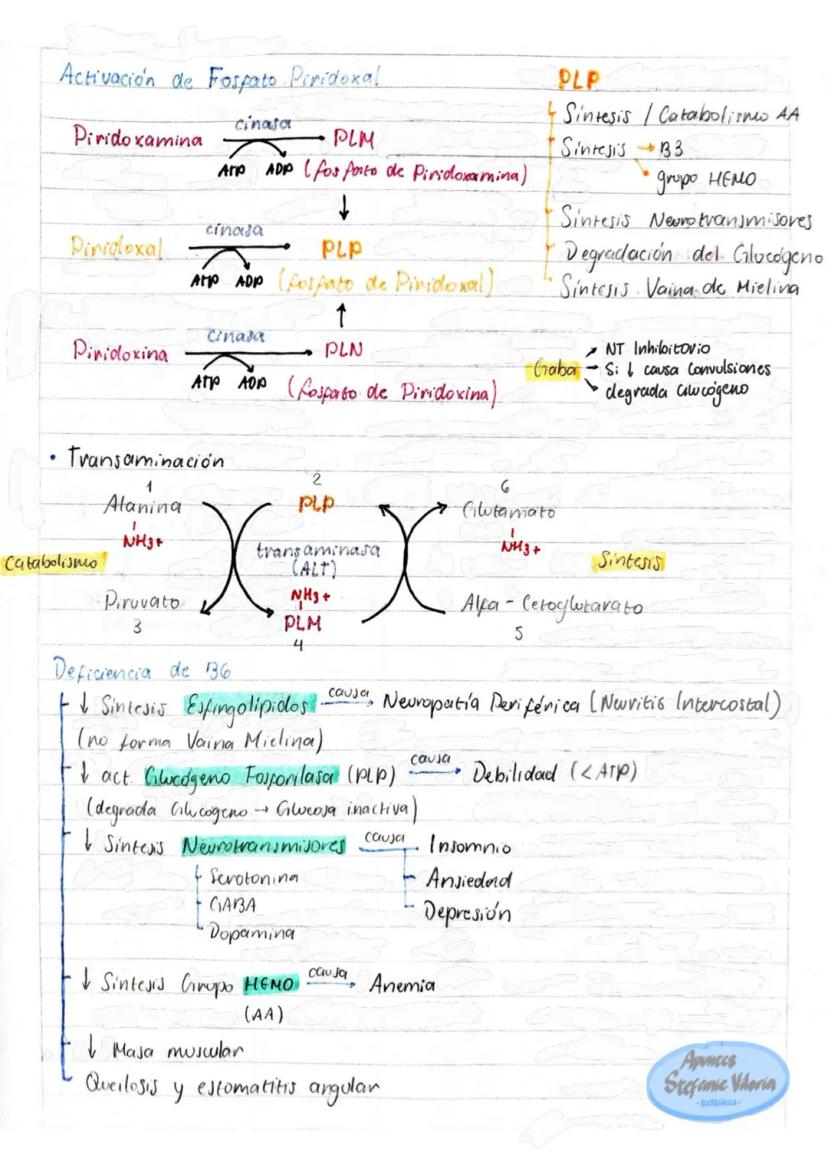 Activación de Fosfato Piridoxal
Piridoxamina cinasa PLM
ATP ADP (fosfato de Piridoxamina)
Piridoxal cinasa PLP
ATP ADP (fosfato de Piridoxal)
Piridoxina cinasa PLN
ATP ADP (fosfato de Piridoxina)
PLP
Síntesis / Catabolismo AA
Síntesis → B3
grupo HEMO
Síntesis Neurotransmisores
Degradación del Glucógeno
Síntesis Vaina de Mielina
Gaba → NT Inhibitorio
Si ↓ causa Convulsiones
degrada Glucógeno
• Transaminación
1 2 6
Alanina PLP Glutamato
NH3+ NH3+
Catabolismo transaminasa Síntesis
(ALT)
NH3+
Piruvato PLM Alfa - Cetoglutarato
3 4 5
Deficiencia de B6
↓ Síntesis Esfingolípidos causa → Neuropatía Periférica (Neuritis Intercostal)
(no forma Vaina Mielina)
↓ act. Glucógeno Fosforilasa (PLP) causa → Debilidad (<ATP)
(degrada Glucógeno → Glucosa inactiva)
↓ Síntesis Neurotransmisores causa Insomnio
Serotonina Ansiedad
GABA Depresión
Dopamina
↓ Síntesis Grupo HEMO causa → Anemia
(AA)
↓ Masa muscular
Queilosis y estomatitis angular
Apuntes
Stefanie Viloria